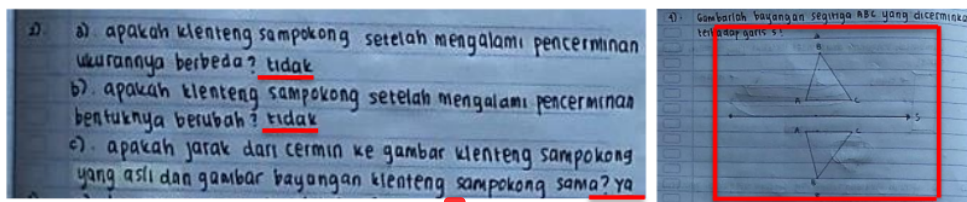 2). a). apakah klenteng sampokong setelah mengalami pencerminan
ukurannya berbeda? tidak
b). apakah klenteng sampokong setelah mengalami pencerminan
bentuknya berubah? tidak
c). apakah jarak dari cermin ke gambar klenteng sampokong
yang asli dan gambar bayangan klenteng sampokong sama? ya
4). Gambarlah bayangan segitiga ABC yang dicerminka
terhadap garis s!
B
A C
S
A C
B